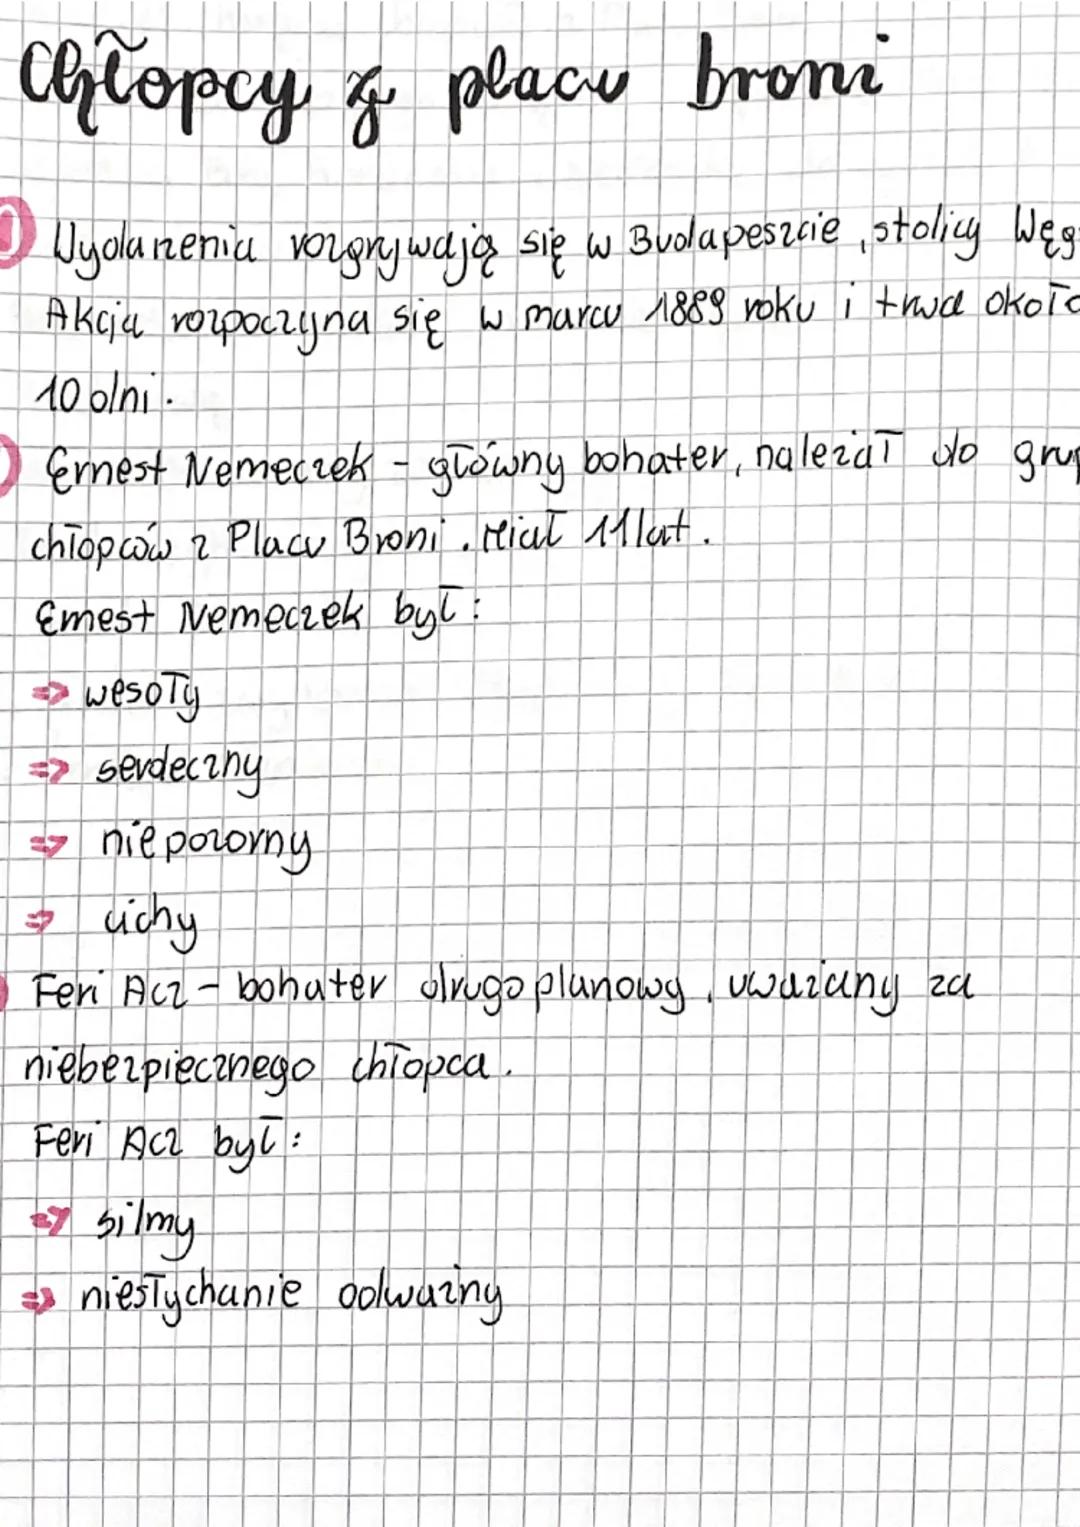 Chłopcy z placu broni
Wydarzenia rozgrywają się w Budapeszcie, stolicy Węg
Akcja rozpoczyna się w marcu 1889 roku i trwa około
10 dni.
Ernest Nemeczek - główny bohater, należał do grup
chłopców z Placu Broni. Miał 11 lat.
Ernest Nemeczek był:
⇒ wesoły
⇒ serdeczny
⇒ niepozorny
⇒ cichy
Feri Acz - bohater drugoplanowy, uważany za
niebezpiecznego chłopca.
Feri Acz był:
⇒ silmy
⇒ niesłychanie odważny